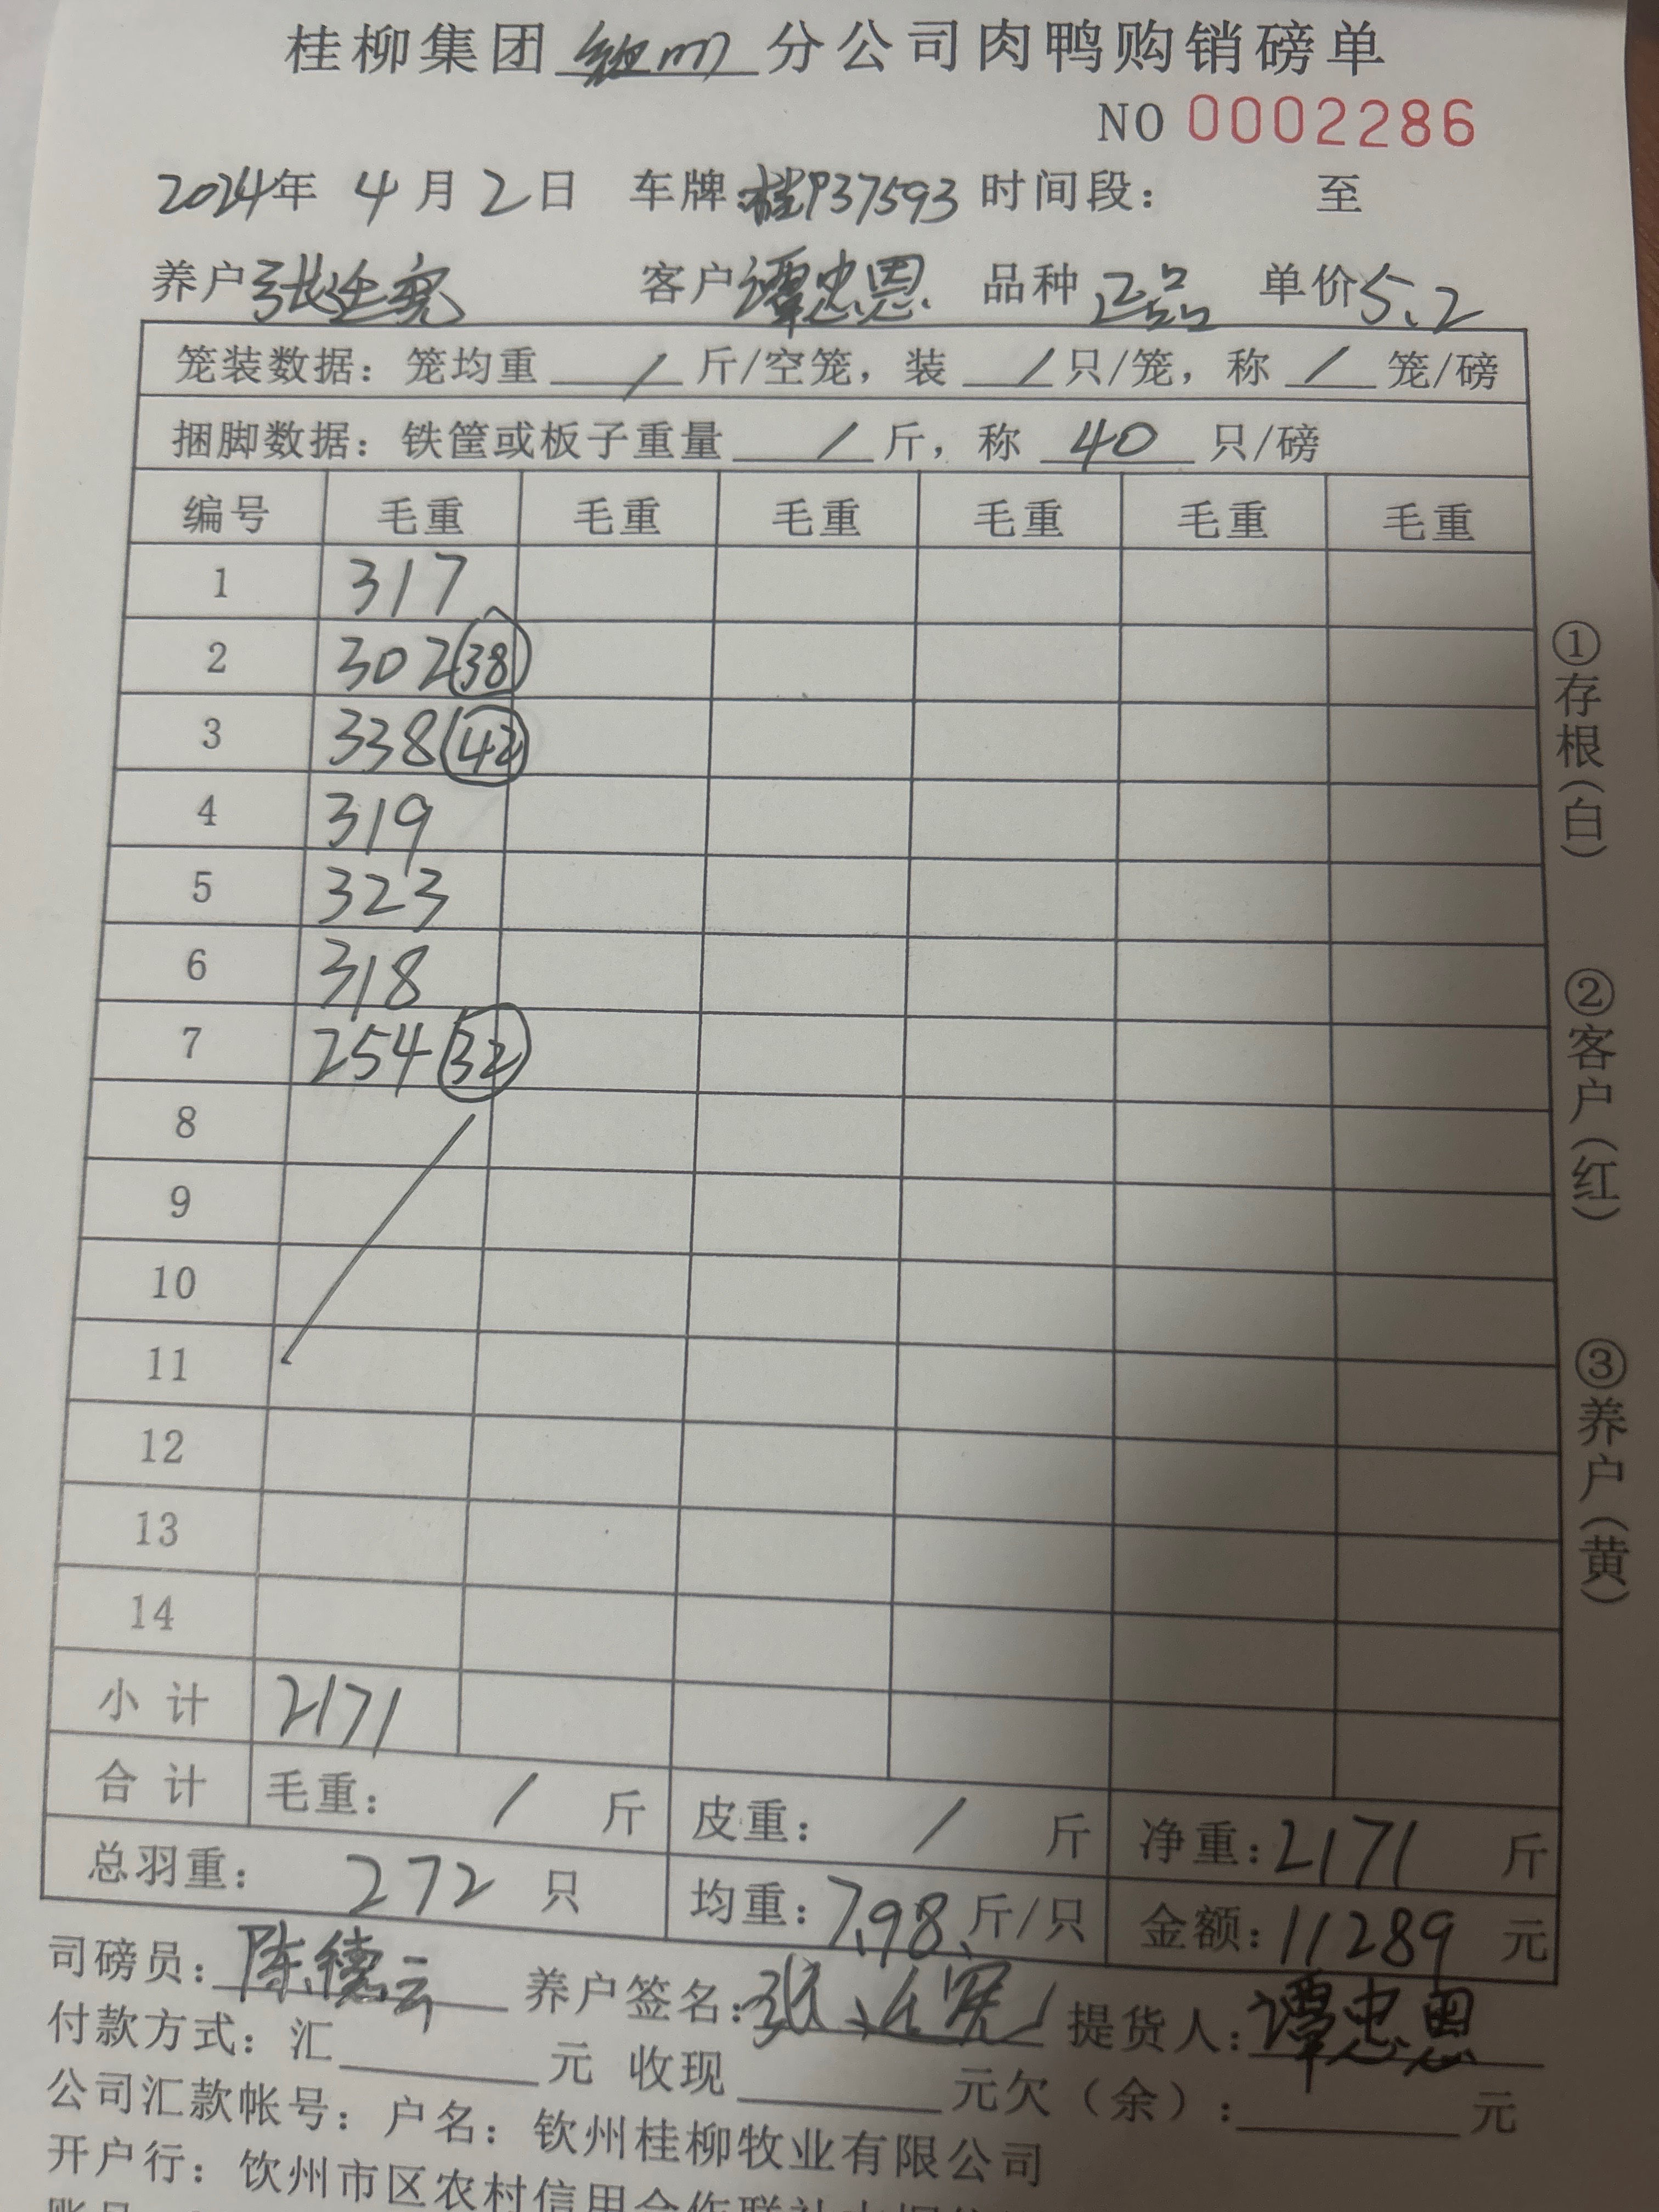 桂柳集团 钦州 分公司肉鸭购销磅单
NO 0002286
2024年 4月2日 车牌:桂P37593 时间段: 至
养户 客户谭忠恩 品种 正品 单价5.2
笼装数据: 笼均重 / 斤/空笼, 装 / 只/笼, 称 / 笼/磅
捆脚数据: 铁筐或板子重量 / 斤, 称 40 只/磅
编号 毛重 毛重 毛重 毛重 毛重 毛重
1 317
2 302 38
3 338 42
4 319
5 323
6 318
7 254 32
8
9
10
11
12
13
14
小计 2171
合计 毛重: / 斤 皮重: / 斤 净重:2171 斤
总羽重: 272 只 均重:7.98 斤/只 金额:11289 元
司磅员:陈德云 养户签名: 提货人:谭忠恩
付款方式: 汇 元 收现 元欠(余): 元
公司汇款帐号: 户名: 钦州桂柳牧业有限公司
开户行: 钦州市区农村信用合作联社
①存根(白)
②客户(红)
③养户(黄)